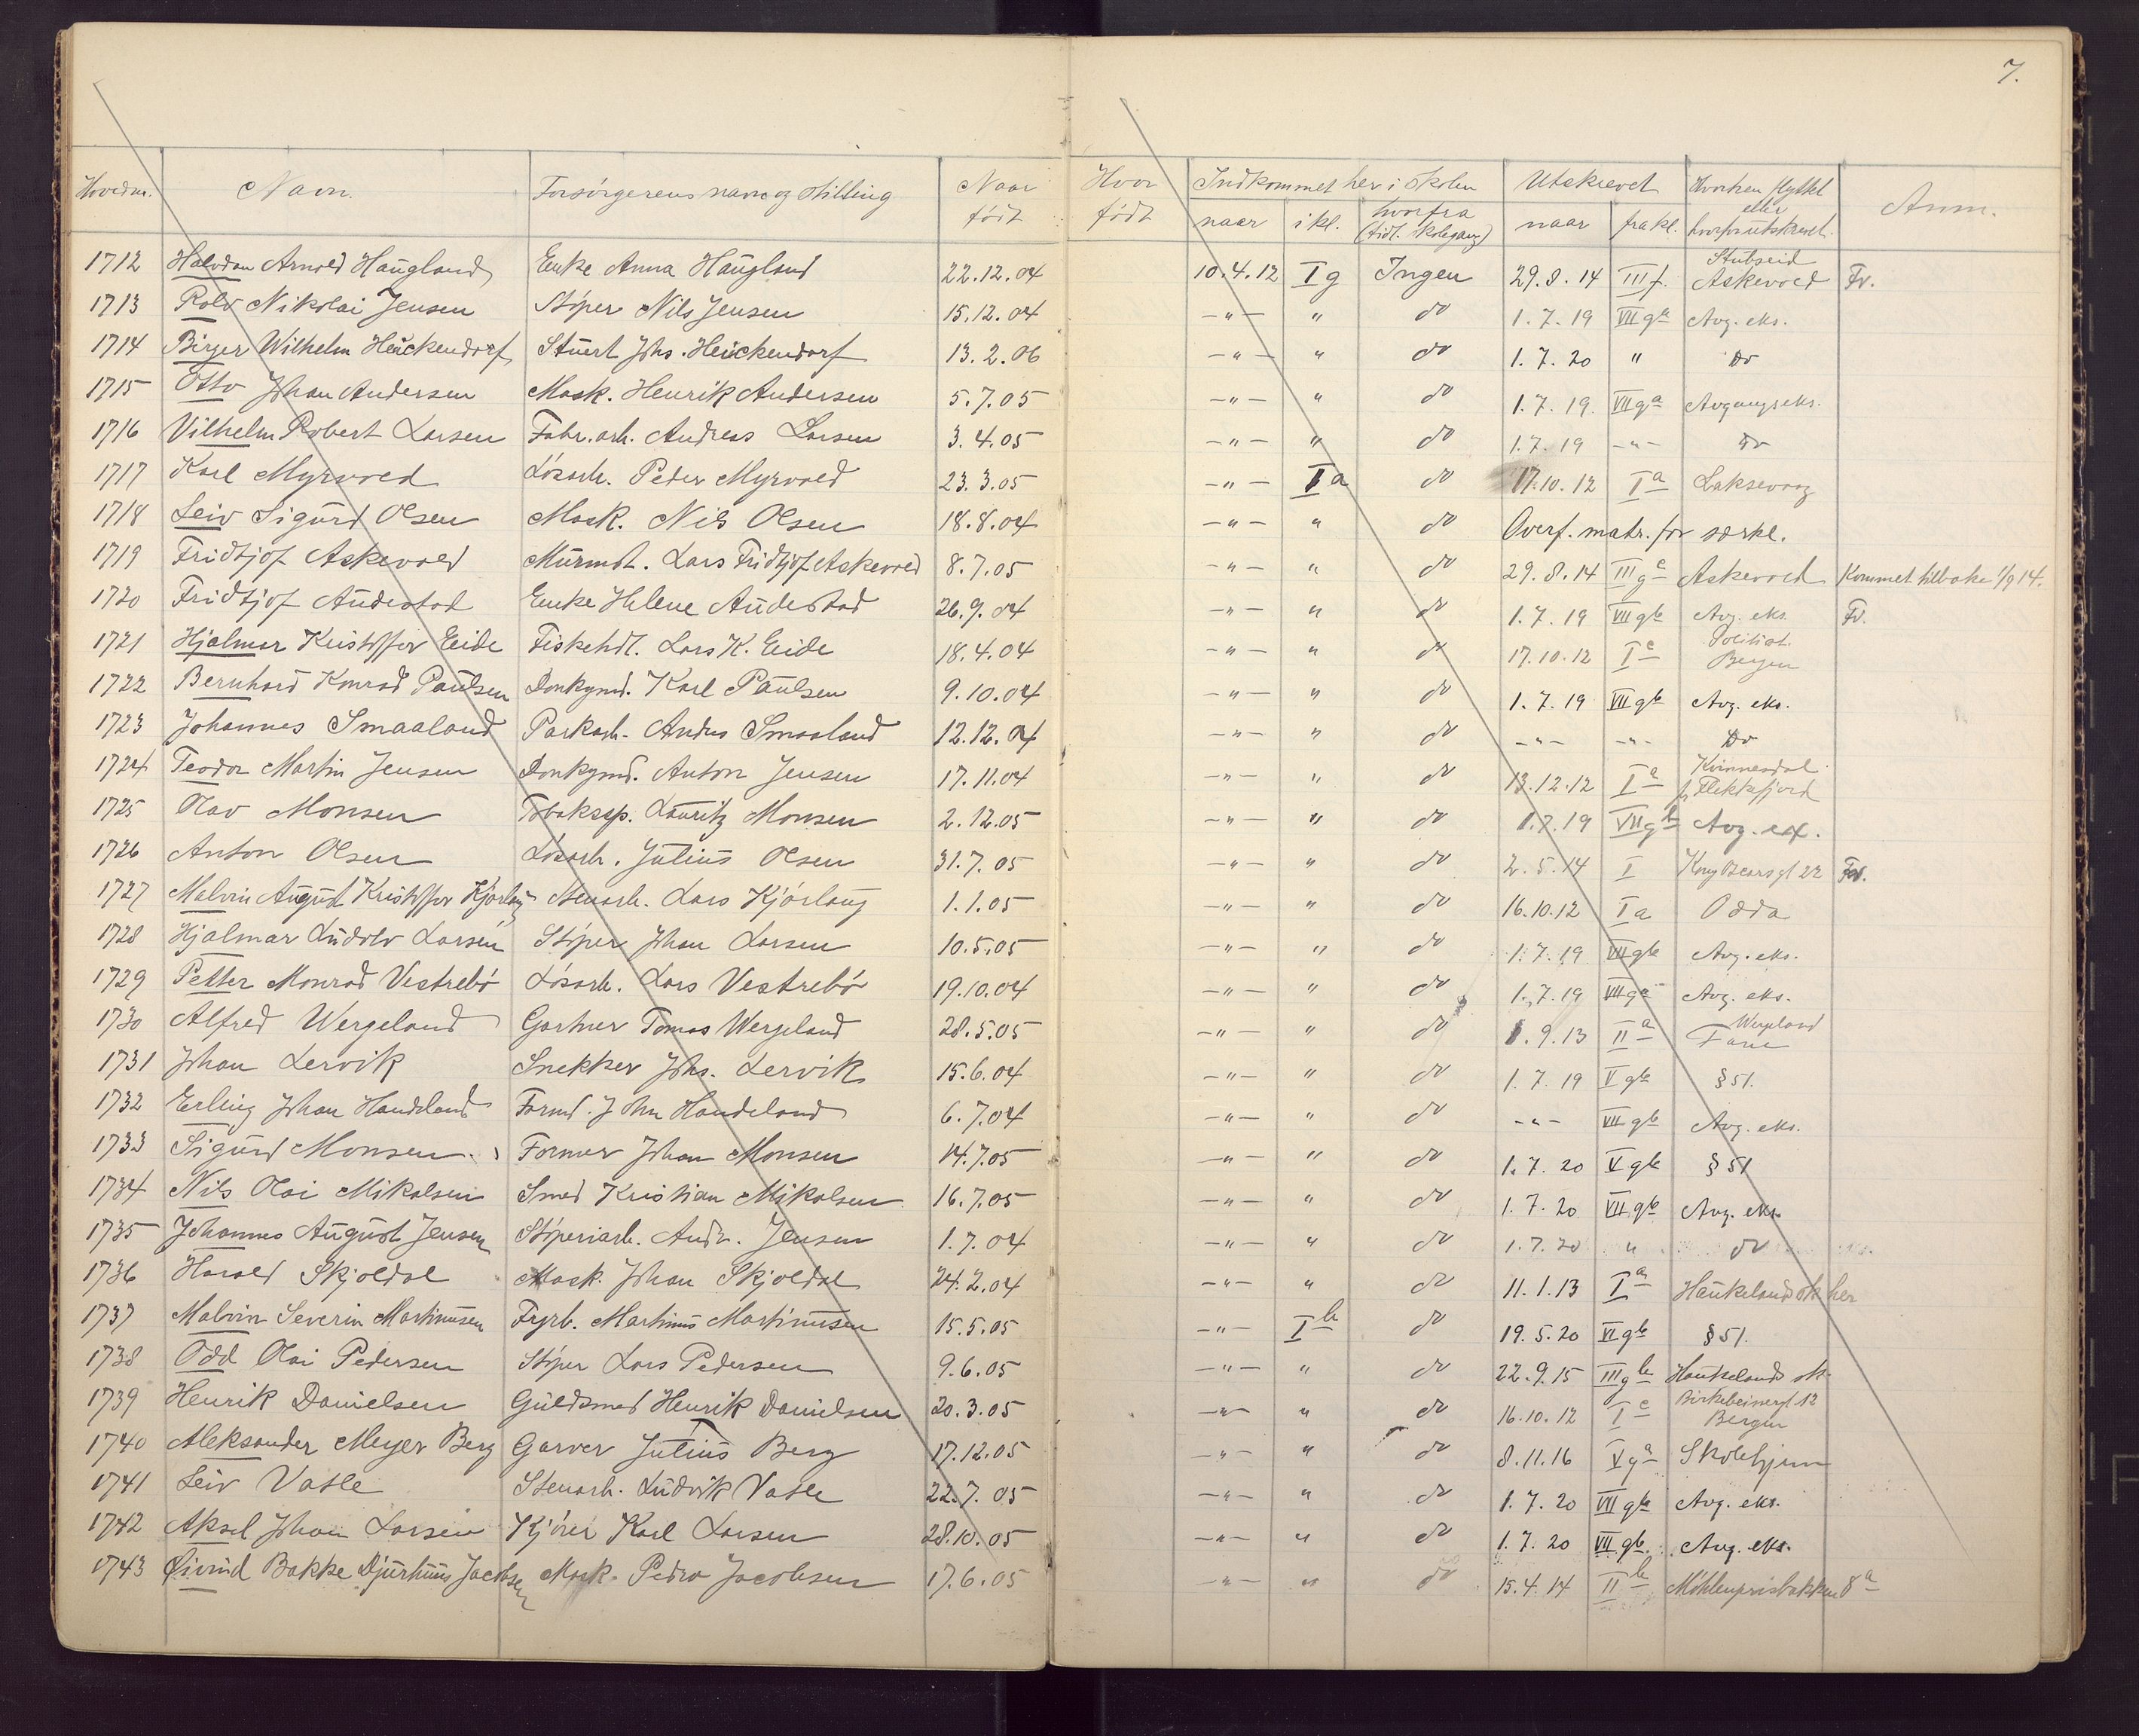 7.
Hovednr. Navn. Forsörgerens navn og stilling Naar födt Hvor födt Indkommet her i skolen naar i kl. hvorfra (tidl. skolegang) Utskrevet naar fra kl. Hvorhen flyttet eller hvorfor utskrevet. Anm.
1712 Halvdan Arnold Haugland Enke Anna Haugland 22.12.04 10.4.12 I g Ingen 29.8.14 III f. Stubseid Askevold Fr.
1713 Rolv Nikolai Jensen Stöper Nils Jensen 15.12.04 -"- " do 1.7.19 VII ga Avg. eks.
1714 Birger Wilhelm Heuckendorf Stuert Johs. Heuckendorf 13.2.06 -"- " do 1.7.20 " Do
1715 Otto Johan Andersen Mask. Henrik Andersen 5.7.05 -"- " do 1.7.19. VII ga Avgangseks.
1716 Vilhelm Robert Larsen Fabr.arb. Andreas Larsen 3.4.05 -"- " do 1.7.19 -"- Do
1717 Karl Myrvold Lösarb. Peder Myrvold 23.3.05 -"- I a do 17.10.12 I a Laksevaag
1718 Leiv Sigurd Olsen Mask. Nils Olsen 18.8.04 -"- " do Overf. matr. for særkl.
1719 Fridtjof Askevold Murmst. Lars Fridtjof Askevold 8.7.05 -"- " do 29.8.14 III g Askevold Kommet tilbake 1/9 14.
1720 Fridtjof Audestad Enke Helene Audestad 26.9.04 -"- " do 1.7.19 VII gb Avg. eks. Fr.
1721 Hjalmar Kristoffer Eide Fiskehdl. Lars K. Eide 18.4.04 -"- " do 17.10.12 I Bergen
1722 Bernhard Konrad Paulsen Donkymd. Karl Paulsen 9.10.04 -"- " do 1.7.19 VII gb Avg. eks.
1723 Johannes Smaaland Parkarb. Andrs Smaaland 12.12.04 -"- " do -"- -"- Do
1724 Teodor Martin Jensen Donkymd. Anton Jensen 17.11.04 -"- " do 13.12.12 I a Kvinnesdal p. Flekkefjord
1725 Olav Monsen Tobaksp. Lauritz Monsen 2.12.05 -"- " do 1.7.19 VII gb Avg. ex.
1726 Anton Olsen Lösarb. Julius Olsen 31.7.05 -"- " do 2.5.14 I Kong Oscarsgt 22 Fr.
1727 Malvin August Kristoffer Kjörlaug Stenarb. Lars Kjörlaug 1.1.05 -"- " do 16.10.12 I a Odda
1728 Hjalmar Ludolv Larsen Stöper Johan Larsen 10.5.05 -"- " do 1.7.19 VII gb Avg. eks.
1729 Petter Monrad Vestrebö Lösarb. Lars Vestrebö 19.10.04 -"- " do 1.7.19 VII ga Avg. eks.
1730 Alfred Wergeland Gartner Tomas Wergeland 28.5.05 -"- " do 1.9.13 II a Wergeland Fane
1731 Johan Lervik Snekker Johs. Lervik 15.6.04 -"- " do 1.7.19 V gb § 51.
1732 Erling Johan Handeland Formd. John Handeland 6.7.04 -"- " do -"- VII gb Avg. eks.
1733 Sigurd Monsen Former Johan Monsen 14.7.05 -"- " do 1.7.20 V gb § 51
1734 Nils Olai Mikalsen Smed Kristian Mikalsen 16.7.05 -"- " do 1.7.20 VII gb Avg. eks.
1735 Johannes August Jensen Stöperiarb. Andr. Jensen 1.7.04 -"- " do 1.7.20 " do
1736 Harald Skjoldal Mask. Johan Skjoldal 24.2.04 -"- " do 11.1.13 I a Haukelands sk. her
1737 Malvin Severin Martinussen Fyrb. Martinus Martinussen 15.5.05 -"- I b do 19.5.20 VI gb § 51.
1738 Odd Olai Pedersen Stöper Lars Pedersen 9.6.05 -"- " do 22.9.15 III gb Haukelands sk.
1739 Henrik Danielsen Guldsmed Henrik Danielsen 20.3.05 -"- " do 16.10.12 I c Birkebeinergt 12 Bergen
1740 Aleksander Meyer Berg Garver Julius Berg 17.12.05 -"- " do 8.11.16 V ga Skolehjem
1741 Leiv Vatle Stenarb. Ludvik Vatle 22.7.05 -"- " do 1.7.20 VII gb Avg. eks.
1742 Aksel Johan Larsen Kjörer Karl Larsen 28.10.05 -"- " do 1.7.20 VII gb. Avg. eks.
1743 Öivind Bakke Djurhuus Jacobsen Mask. Pedro Jacobsen 17.6.05 -"- " do 15.4.14 II b Möhlenprisbakken 8a